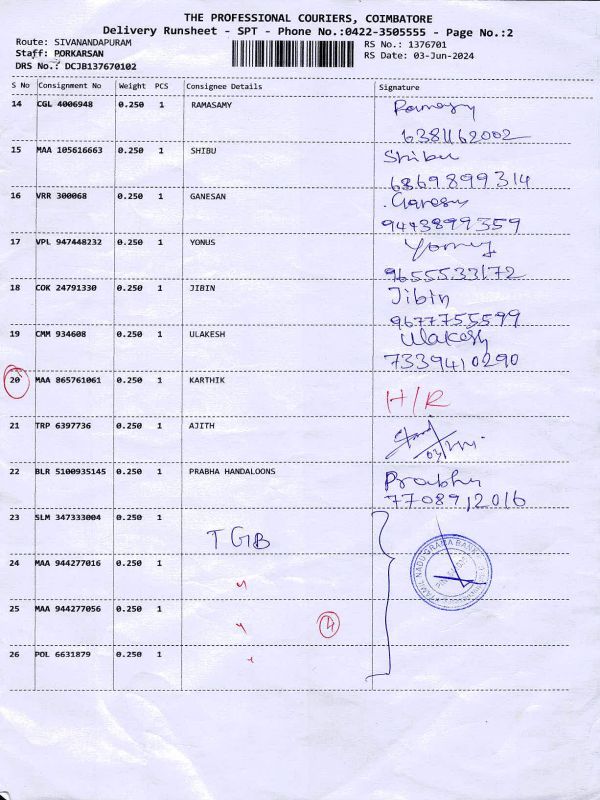 THE PROFESSIONAL COURIERS, COIMBATORE
Delivery Runsheet - SPT - Phone No.:0422-3505555 - Page No.:2
Route: SIVANANDAPURAM RS No.: 1376701
Staff: PORKARSAN RS Date: 03-Jun-2024
DRS No.: DCJB137670102
S No Consignment No Weight PCS Consignee Details Signature
14 CGL 4006948 0.250 1 RAMASAMY
6381162002
15 MAA 105616663 0.250 1 SHIBU Shibu
6869899314
16 VRR 300068 0.250 1 GANESAN Ganesan
9443899359
17 VPL 947448232 0.250 1 YONUS
9655533172
18 COK 24791330 0.250 1 JIBIN Jibin
9677755599
19 CMM 934608 0.250 1 ULAKESH Ulakesh
7339410290
20 MAA 865761061 0.250 1 KARTHIK H/R
21 TRP 6397736 0.250 1 AJITH
22 BLR 5100935145 0.250 1 PRABHA HANDALOONS Prabhu
7708912016
23 SLM 347333004 0.250 1 TGB
24 MAA 944277016 0.250 1 "
25 MAA 944277056 0.250 1 " 4
26 POL 6631879 0.250 1 "
TAMIL NADU GRAMA BANK